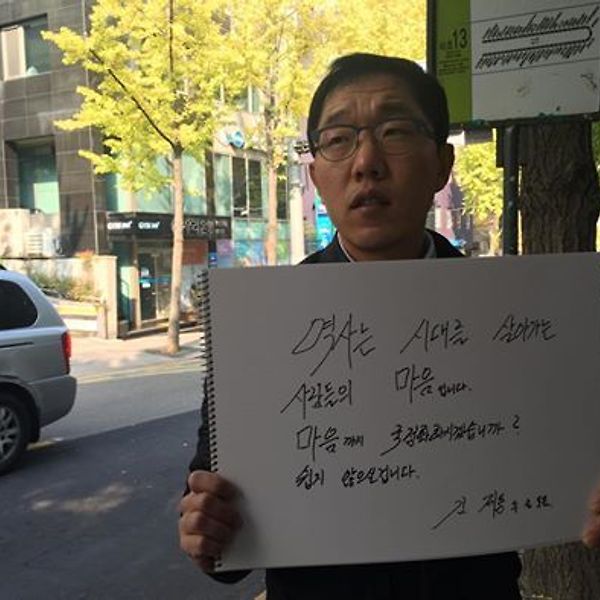 13
역사는 시대를 살아가는
사람들의 마음입니다.
마음까지 국정화하시겠습니까?
쉽지 않으실겁니다.
김 제동